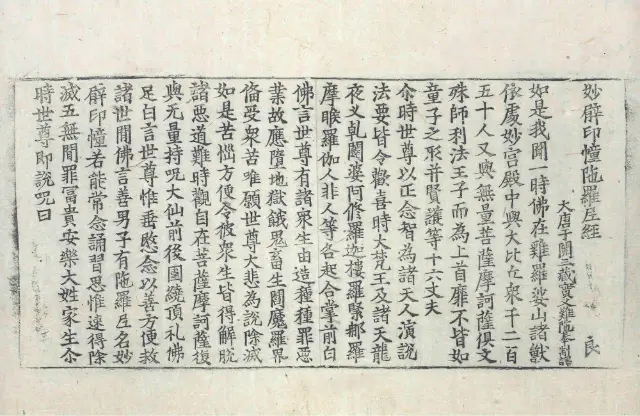 妙臂印憧陁羅尼經
大唐于闐三藏實叉難陁奉制譯 良
如是我聞一時佛在雞羅娑山諸獸
依處妙宮殿中與大比丘衆千二百
五十人又與無量菩薩摩訶薩俱文
殊師利法王子而為上首靡不皆如
童子之形并賢護等十六丈夫
尒時世尊以正念智為諸天人演說
法要皆令歡喜時大梵王及諸天龍
夜叉軋闥婆阿修羅迦樓羅緊那羅
摩睺羅伽人非人等各起合掌前白
佛言世尊有諸衆生由造種種罪惡
業故應墮地獄餓鬼畜生閻魔羅界
備受衆苦唯願世尊大悲為說除滅
如是苦惱方便令彼衆生皆得解脫
諸惡道難時觀自在菩薩摩訶薩復
與无量持呪大仙前後圍繞頂礼佛
足白言世尊惟垂愍念以善方便救
諸世間佛言善男子有陁羅尼名妙
臂印憧若能常念誦習思惟速得除
滅五無間罪冨貴安樂大姓家生尒
時世尊即說呪曰